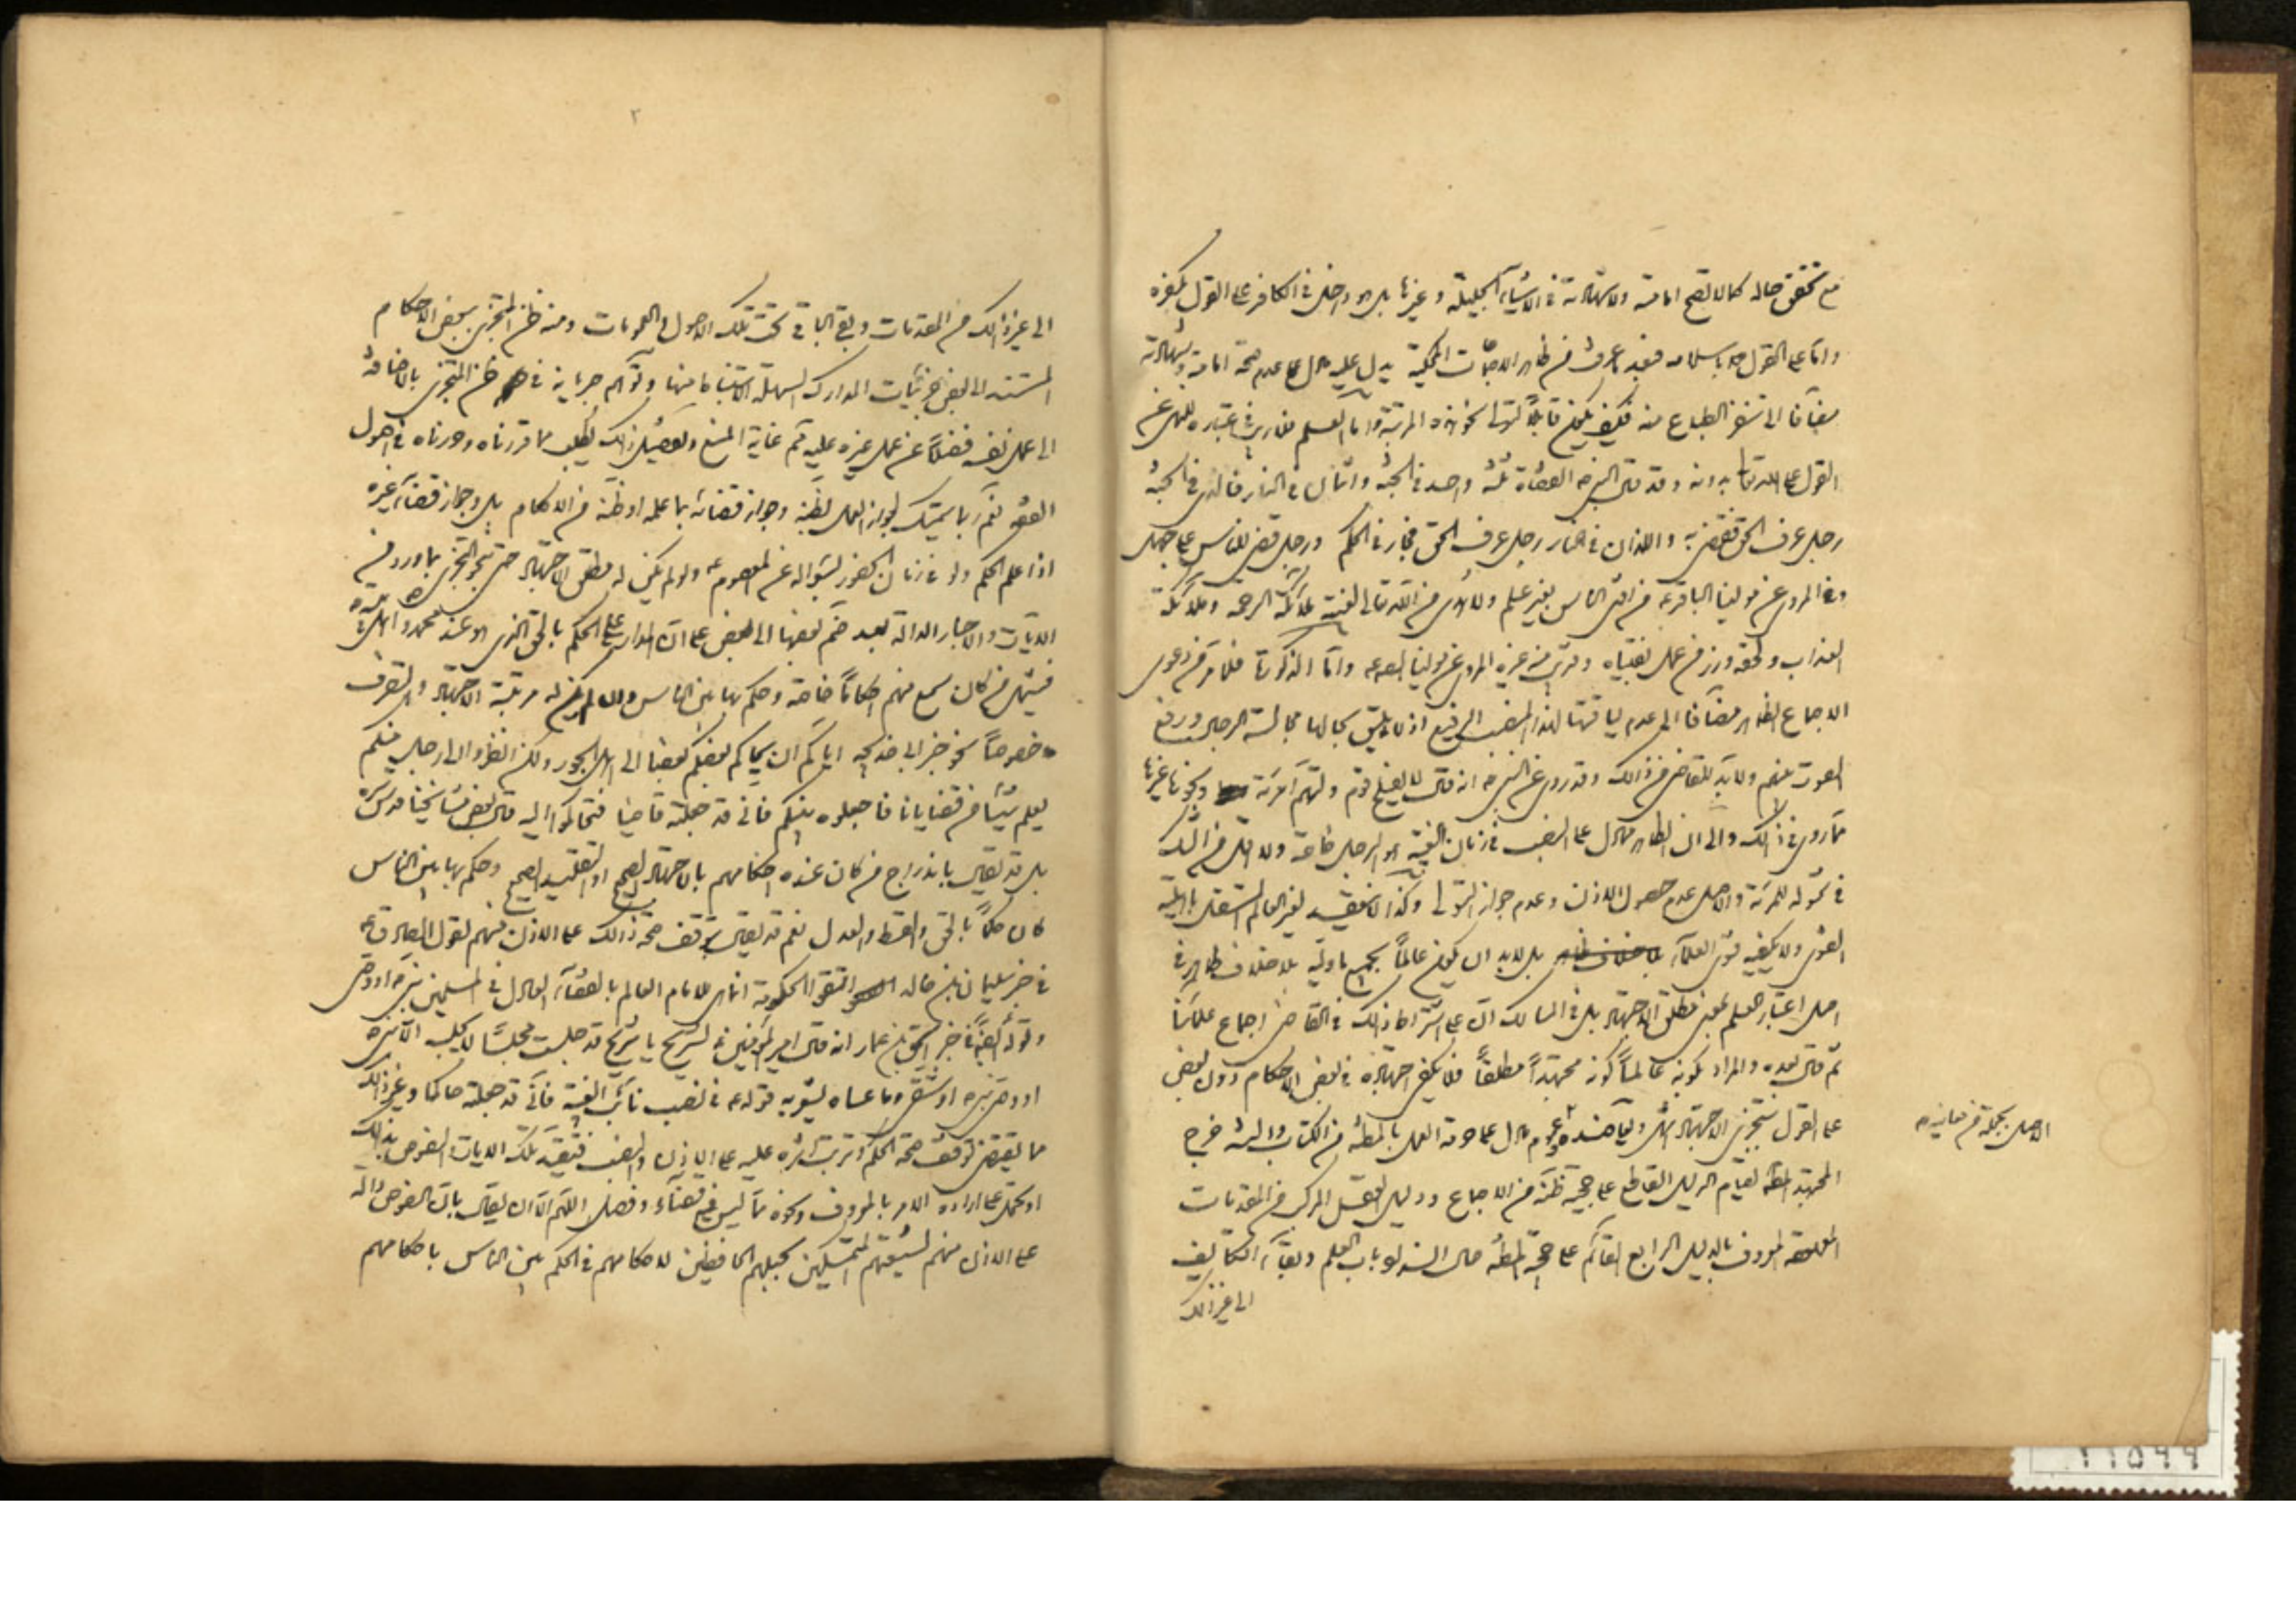 مع تحقق حاله كما لا تصح امامته ولا شهادته في الاشياء الجليلة وغيرها بل هو داخل في الكافر على القول بكفره
واما على القول باسلامه فبعد من ظاهر الاجماعات المحكية يدل عليه ما دل على عدم صحة امامته وشهادته
مضافا الى تنفر الطباع منه فكيف يكون قابلا لتولي نحو هذه المرتبة واما العلم فلا ريب في اعتباره للنهي عن
القول على الله تعالى بدونه وقد قال النبي ص القضاة ثلثة واحد في الجنة واثنان في النار فالذي في الجنة
رجل عرف الحق فقضى به واللذان في النار رجل عرف الحق فجار في الحكم ورجل قضى للناس على جهل
وفي المروي عن مولينا الباقر ع من افتى الناس بغير علم ولا هدى من الله تعالى لعنته ملائكة الرحمة وملائكة
العذاب ولحقه وزر من عمل بفتياه وقريب منه غيره المروي عن مولينا الص ع واما الذكورة فلما مر من دعوى
الاجماع الظاهر مضافا الى عدم لياقتها لهذا المنصب الرفيع اذ لا يليق بحالها مجالسة الرجال ورفع
الصوت بينهم ولا بد للقاضي من ذالك وقد روي عن النبي ص انه قال لا يفلح قوم وليتهم امرئة ونحوها غيرها
مما روي في ذالك والى ان الظاهر مما دل على النصب في زمان الغيبة هو الرجل خاصة ولا اقل من الشك
في شموله للمرئة والاصل عدم حصول الاذن وعدم جواز التولي وكذا لا ينعقد لغير العالم المستقل باهلية
الفتوى ولا يكفيه فتوى العلماء بل لابد ان يكون عالما بجميع ما وليه بلا خلاف ظاهر في
اصل اعتبار العلم بمعنى مطلق الاجتهاد بل في المسالك ان على اشتراط ذالك في القاضي اجماع علمائنا
ثم قال بعده والمراد بكونه عالما كونه مجتهدا مطلقا فلا يكفي اجتهاده في بعض الاحكام دون بعض
على القول بتجزي الاجتهاد انتهى عموم ما دل على حرمة العمل بالمظنة من الكتاب والسنة خرج
المجتهد المطلق لقيام الدليل القاطع على حجية ظنه من الاجماع ودليل العقل المركب من المقدمات
المعروف بالدليل الرابع القائم على حجية المظنة حال انسداد باب العلم وبقاء التكاليف
الى غير ذالك
الى غير ذالك من المقدمات وبقي الباقي تحت تلك الاصول والعمومات ومنه ظن المتجزي ببعض الاحكام
المستند الى بعض جزئيات المدارك السهلة الاستنباط منها وتوهم جريانه في ظن المتجزي بالاضافة
الى عمل نفسه فضلا عن عمل غيره عليه ثم غاية المنع وتفصيل ذالك يطلب مما قررناه وحررناه في اصول
الفقه نعم ربما يتمسك لجواز العمل بظنه وجواز قضائه بما علمه او ظنه من الاحكام بل وجواز قضاء غيره
اذا علم الحكم ولو في زمان الحضور لسؤاله عن المعصوم ع ولو لم يكن له مطلق الاجتهاد حتى نحو التجزي بما ورد في
الايات والاخبار الدالة بعد ضم بعضها الى البعض على ان المدار على الحكم بالحق الذي هو عند محمد واهل بيته
فيشمل من كان سمع منهم احكاما خاصة وحكم بها بين الناس وان لم يكن له مرتبة الاجتهاد والتصرف
خصوصا نحو خبر ابي خديجة اياكم ان يحاكم بعضكم بعضا الى اهل الجور ولكن انظروا الى رجل منكم
يعلم شيئا من قضايانا فاجعلوه بينكم فاني قد جعلته قاضيا فتحاكموا اليه قال بعض مشايخنا قدس سره
بل قد يقال باندراج من كان عنده احكامهم بالاجتهاد الصحيح او التقليد الصحيح وحكم بها بين الناس
كان حكما بالحق والقسط والعدل نعم قد يقال بتوقف صحة ذالك على الاذن منهم لقول الصادق ع
في خبر سليمان بن خالد اتقوا الحكومة انما هي للامام العالم بالقضاء العادل في المسلمين نبي او وصي
وقوله ايضا في خبر اسحق بن عمار انه قال امير المؤمنين ع لشريح يا شريح قد جلست مجلسا لا يجلسه الا نبي
او وصي نبي او شقي وما عساه يشعر به قوله ع في نصب نائب الغيبة فاني قد جعلته حاكما وغير ذالك
مما يقتضي توقف صحة الحكم وترتب اثره عليه على الاذن والنصب فتقيد تلك الايات والنصوص بذالك
او تحمل على ارادة الامر بالمعروف ونحوه مما ليس فيه قضاء وفصل اللهم الا ان يقال بان النصوص دالة
على الاذن منهم لشيعتهم المتمسكين بحبلهم الحافظين لاحكامهم في الحكم بين الناس باحكامهم